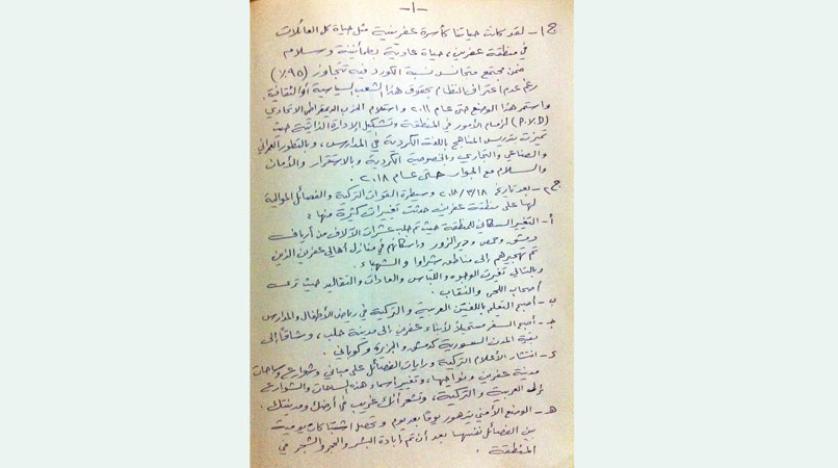 -١-
ج١- لقد كانت حياتنا كأسرة عفرينية مثل حياة كل العائلات
في منطقة عفرين، حياة عادية بطمأنينة وسلام
ضمن مجتمع متجانس نسبة الكورد فيه تتجاوز (٩٥٪)
رغم عدم اعتراف النظام بحقوق هذا الشعب السياسية أو الثقافية
واستمر هذا الوضع حتى عام ٢٠١١ واستلام الحزب الديمقراطي الاتحادي
(P.Y.D) لزمام الأمور في المنطقة وتشكيل الإدارة الذاتية حيث
تميزت بتدريس المناهج باللغة الكردية في المدارس، وبالتطور العمراني
والصناعي والتجاري والخصوصية الكردية وبالاستقرار والأمان
والسلام مع الجوار حتى عام ٢٠١٨.
ج٢- بعد تاريخ ٢٠١٨/٣/١٨ وسيطرة القوات التركية والفصائل الموالية
لها على منطقة عفرين حدثت تغييرات كثيرة منها:
أ- التغيير السكاني للمنطقة حيث تم جلب عشرات الآلاف من أرياف
دمشق وحمص ودير الزور واسكانهم في منازل أهالي عفرين الذين
تم تهجيرهم إلى مناطق شيراوا والشهباء.
وبالتالي تغيرت الوجوه واللباس والعادات والتقاليد حيث ترى
أصحاب اللحى والنقاب.
ب- أصبح التعليم باللغتين العربية والتركية في رياض الأطفال والمدارس
ج- أصبح السفر مستحيلاً لأبناء عفرين إلى مدينة حلب، وشاقاً إلى
بقية المدن السورية كدمشق والجزيرة وكوباني.
د- انتشار الأعلام التركية ورايات الفصائل على مباني وشوارع وساحات
مدينة عفرين ونواحيها، وتغيير اسماء هذه الساحات والشوارع
إلى العربية والتركية، وتشعر أنك غريب في أرضك ومدينتك.
هـ- الوضع الأمني يتدهور يوماً بعد يوم وتحصل اشتباكات يومية
بين الفصائل نفسها بعد أن تم إبادة البشر والحجر والشجر في
المنطقة.